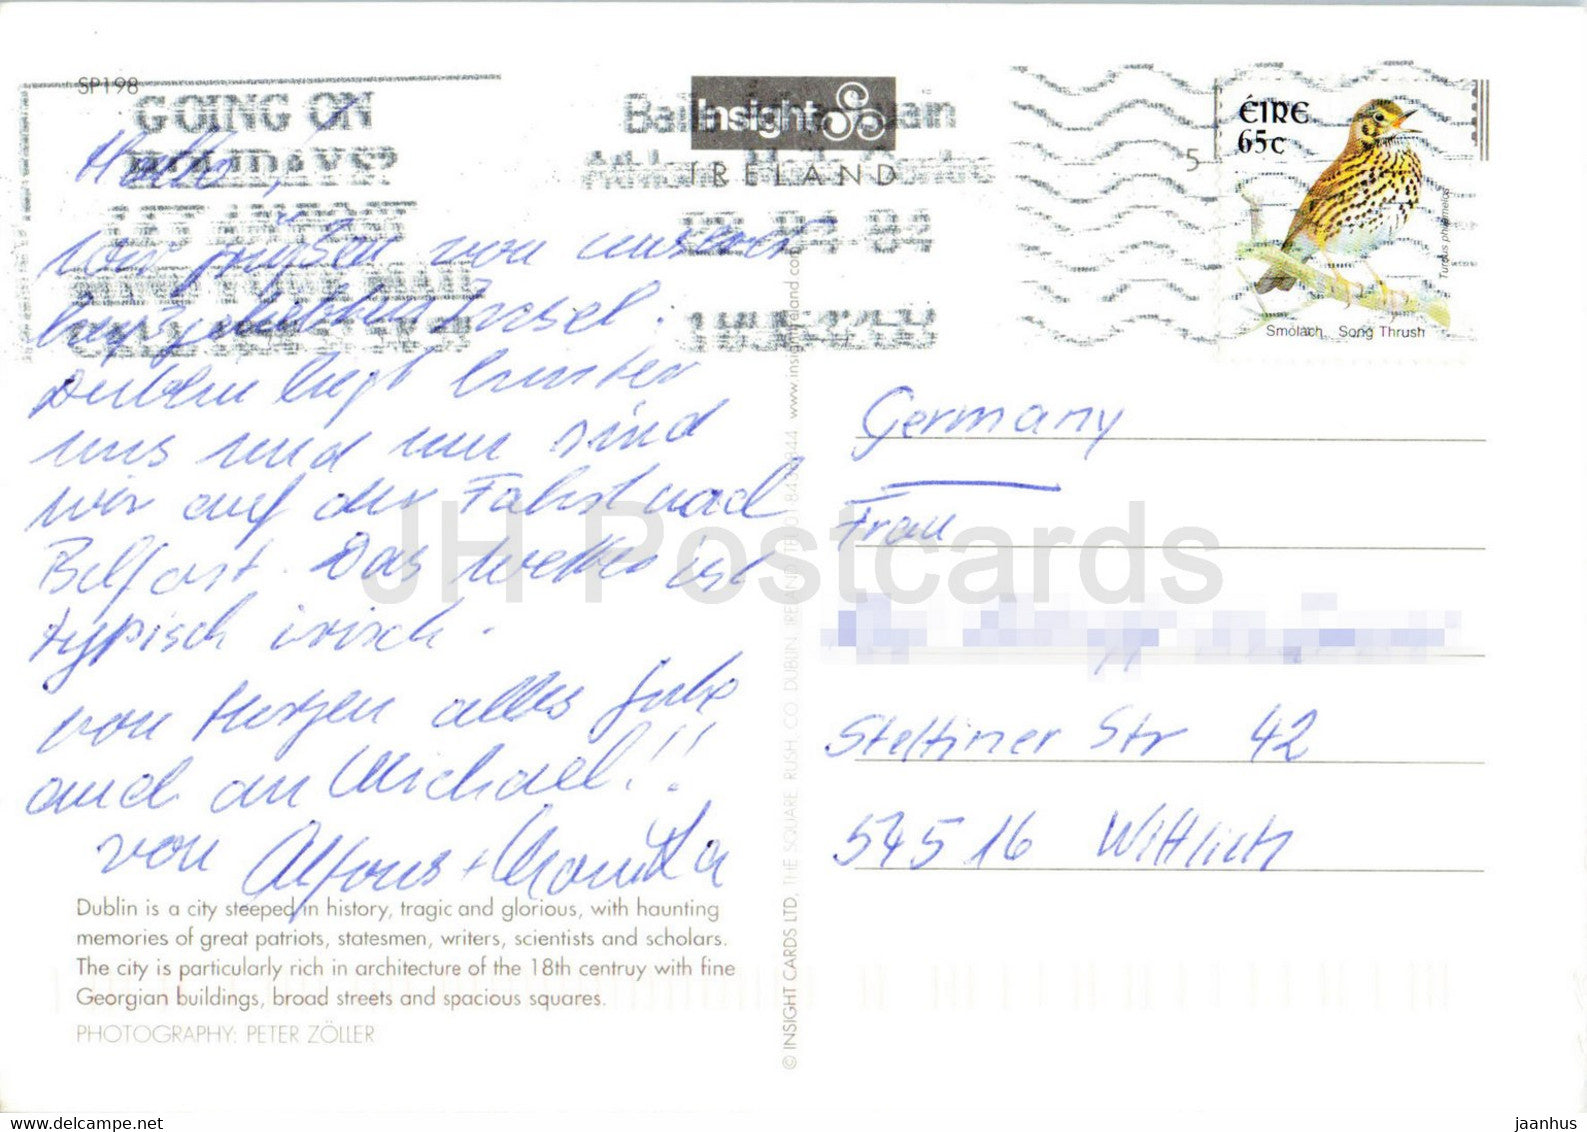 SP198
GOING ON
HOLIDAYS?
Insight
IRELAND
5
ÉIRE
65c
Turdus philomelos
Smólach Song Thrush
Hallo,
wir grüßen von unserer
Insel.
Dublin liegt hinter
uns und nun sind
wir auf der Fahrt nach
Belfast. Das Wetter ist
typisch irisch.
von Herzen alles Gute
auch an Michael!!
von Alfons + Monika
Germany
Frau
Stettiner Str 42
54516 Wittlich
Dublin is a city steeped in history, tragic and glorious, with haunting
memories of great patriots, statesmen, writers, scientists and scholars.
The city is particularly rich in architecture of the 18th centruy with fine
Georgian buildings, broad streets and spacious squares.
PHOTOGRAPHY: PETER ZÖLLER
© INSIGHT CARDS LTD, THE SQUARE, RUSH, CO DUBLIN, IRELAND www.insightireland.com
JH Postcards
delcampe.net
jaanhus